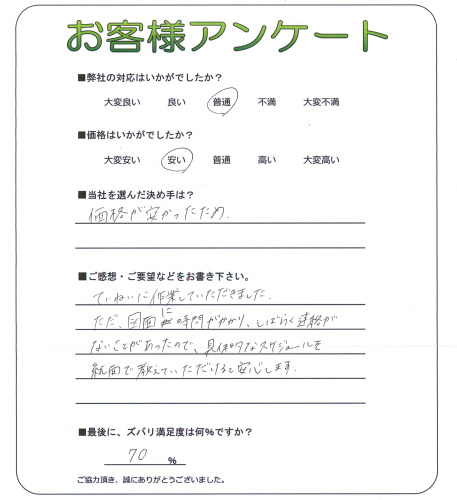 お客様アンケート
■弊社の対応はいかがでしたか？
大変良い 良い 普通 不満 大変不満
■価格はいかがでしたか？
大変安い 安い 普通 高い 大変高い
■当社を選んだ決め手は？
価格が安かったため.
■ご感想・ご要望などをお書き下さい。
ていねいに作業していただきました.
ただ、図面に時間がかかり、しばらく連絡が
ないことがあったので、具体的なスケジュールを
紙面で教えていただけると安心します.
■最後に、ズバリ満足度は何%ですか？
70 %
ご協力頂き、誠にありがとうございました。